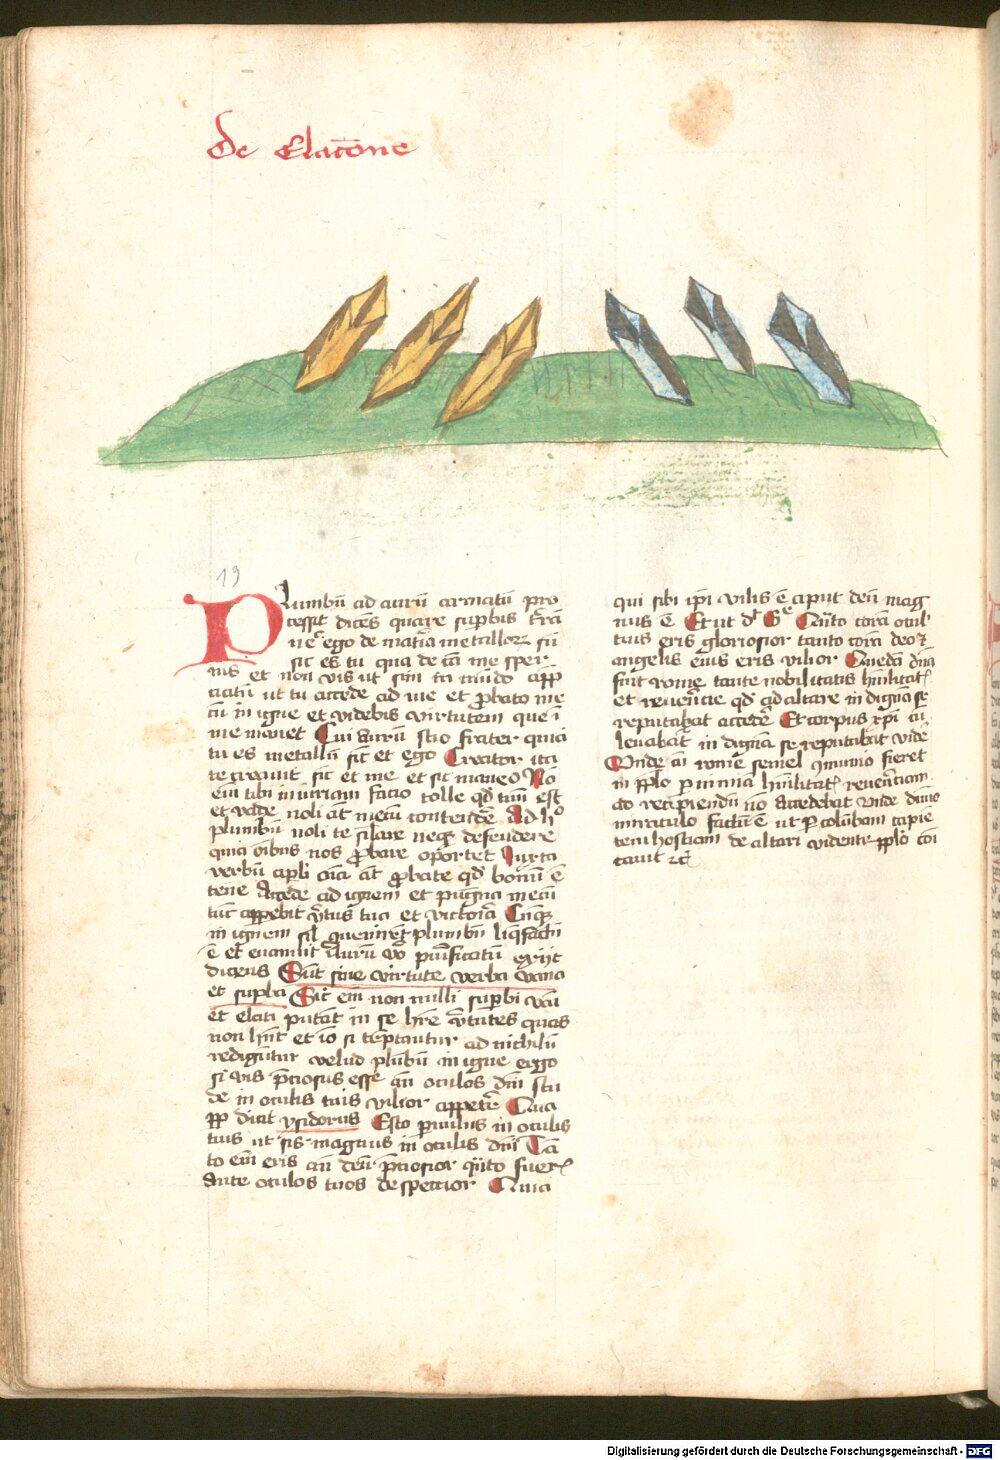 De Elac̄one
19
Plumbū ad aurū armatū pro
cessit dicēs quare supbis ꝯtra
me ego de mat̄ia metallorꝝ sū
sic es tu qua de cā me sper
nis et non vis ut sim in mūdo app
ciatū ut tu accede ad me et ꝓbato me
cū in igne et videbis virtutem que ī
me manet Cui aurū scio frater quia
tu es metallū sic et ego Creator ita
te creavit sic et me et sic maneo No
em tibi iniuriam facio tolle qd tuū est
et vade noli āt mecū contendere Ad h°
plumbū noli te silare neqꝫ defendere
quia oībus nos ꝓbare oportet Iuxta
verbū apli oīa āt ꝓbate qd bonū ē
tene Accede ad ignem et pugna mecū
tūc appebit v̄tus tua et victoria Cūqꝫ
in ignem sil plumbū liqefactū
ē et evanuit Aurū vō purificatū exijt
dicens Sūt sine virtute verba vana
et supba Sic em non nulli supbi vani
et elati putāt in se hr̄e v̄tutes quas
non hn̄t et iō si temptantur ad nichilū
rediguntur velud plūbū in igne ergo
si vis p̄ciosus esse añ oculos dn̄i stu
de in oculis tuis vilior appere Qua
ꝓp dicit ysidorus Esto pvulus in oculis
tuis ut sis magnus in oculis dn̄i Tā
to em eris añ deū p̄ciosior quāto fuer̄
ante oculos tuos despectior Quia
qui sibi ip̄i vilis ē aput deū mag
nus ē Et ut dꝫ Gᵉ Quāto corā ocul
tuis eris gloriosior tanto corā deo ⁊
angelis eius eris vilior Quedā dn̄a
fuit rome tante nobilitatis hūilitat̄
et reuēncie qd ad altare in dignā se
reputabat accedē Et corpus xp̄i
levabat in dignā se reputabat vidē
Unde cū rome semel ꝯmunio fieret
in pplo p nimia hūilitat̄ reuēnciam
ad recipiendū nō Accedebat Unde divino
miraculo factū ē ut p colūbam capie
tem hostiam de altari vidente pplo coī
cavit ⁊c̄
Digitalisierung gefördert durch die Deutsche Forschungsgemeinschaft - DFG